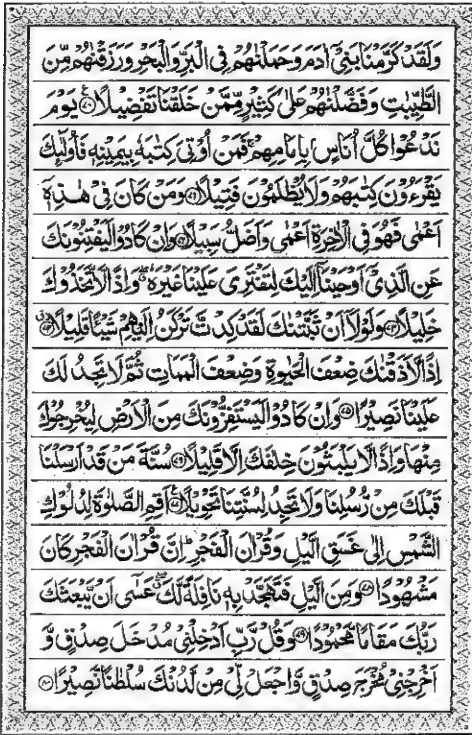 وَلَقَدْ كَرَّمْنَا بَنِىْٓ اٰدَمَ وَحَمَلْنٰهُمْ فِى الْبَرِّ وَالْبَحْرِ وَرَزَقْنٰهُمْ مِّنَ
الطَّيِّبٰتِ وَفَضَّلْنٰهُمْ عَلٰى كَثِيْرٍ مِّمَّنْ خَلَقْنَا تَفْضِيْلًا ۝۷۰ يَوْمَ
نَدْعُوْا كُلَّ اُنَاسٍۭ بِاِمَامِهِمْ ۚ فَمَنْ اُوْتِىَ كِتٰبَهٗ بِيَمِيْنِهٖ فَاُولٰٓئِكَ
يَقْرَءُوْنَ كِتٰبَهُمْ وَلَا يُظْلَمُوْنَ فَتِيْلًا ۝۷۱ وَمَنْ كَانَ فِىْ هٰذِهٖٓ
اَعْمٰى فَهُوَ فِى الْاٰخِرَةِ اَعْمٰى وَاَضَلُّ سَبِيْلًا ۝۷۲ وَاِنْ كَادُوْا لَيَفْتِنُوْنَكَ
عَنِ الَّذِىْٓ اَوْحَيْنَآ اِلَيْكَ لِتَفْتَرِىَ عَلَيْنَا غَيْرَهٗ ۖ وَاِذًا لَّاتَّخَذُوْكَ
خَلِيْلًا ۝۷۳ وَلَوْلَآ اَنْ ثَبَّتْنٰكَ لَقَدْ كِدْتَّ تَرْكَنُ اِلَيْهِمْ شَيْـًٔا قَلِيْلًا ۝۷۴
اِذًا لَّاَذَقْنٰكَ ضِعْفَ الْحَيٰوةِ وَضِعْفَ الْمَمَاتِ ثُمَّ لَا تَجِدُ لَكَ
عَلَيْنَا نَصِيْرًا ۝۷۵ وَاِنْ كَادُوْا لَيَسْتَفِزُّوْنَكَ مِنَ الْاَرْضِ لِيُخْرِجُوْكَ
مِنْهَا وَاِذًا لَّا يَلْبَثُوْنَ خِلٰفَكَ اِلَّا قَلِيْلًا ۝۷۶ سُنَّةَ مَنْ قَدْ اَرْسَلْنَا
قَبْلَكَ مِنْ رُّسُلِنَا وَلَا تَجِدُ لِسُنَّتِنَا تَحْوِيْلًا ۝۷۷ اَقِمِ الصَّلٰوةَ لِدُلُوْكِ
الشَّمْسِ اِلٰى غَسَقِ الَّيْلِ وَقُرْاٰنَ الْفَجْرِ ؕ اِنَّ قُرْاٰنَ الْفَجْرِ كَانَ
مَشْهُوْدًا ۝۷۸ وَمِنَ الَّيْلِ فَتَهَجَّدْ بِهٖ نَافِلَةً لَّكَ ۖ عَسٰٓى اَنْ يَّبْعَثَكَ
رَبُّكَ مَقَامًا مَّحْمُوْدًا ۝۷۹ وَقُلْ رَّبِّ اَدْخِلْنِىْ مُدْخَلَ صِدْقٍ وَّ
اَخْرِجْنِىْ مُخْرَجَ صِدْقٍ وَّاجْعَلْ لِّىْ مِنْ لَّدُنْكَ سُلْطٰنًا نَّصِيْرًا ۝۸۰